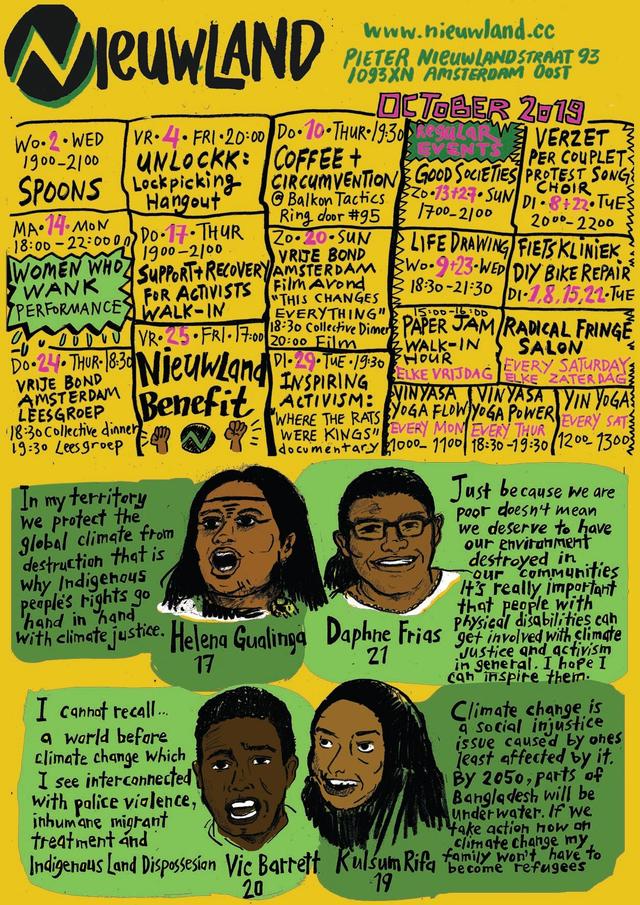 NIEUWLAND
www.nieuwland.cc
PIETER NIEUWLANDSTRAAT 93
1093XN AMSTERDAM OOST
OCTOBER 2019
WO·2·WED
1900-2100
SPOONS
VR·4·FRI·20:00
UNLOCKK:
Lockpicking
Hangout
DO·10·THUR·19:30
COFFEE +
CIRCUMVENTION
@ Balkon Tactics
Ring door #95
REGULAR
EVENTS
GOOD SOCIETIES
ZO·13+27·SUN
1700-2100
VERZET
PER COUPLET
PROTEST SONG
CHOIR
DI·8+22·TUE
2000-2200
MA·14·MON
18:00-22:00
WOMEN WHO
WANK
PERFORMANCE
DO·17·THUR
1900-2100
SUPPORT+RECOVERY
FOR ACTIVISTS
WALK-IN
ZO·20·SUN
VRIJE BOND
AMSTERDAM
Film Avond
"THIS CHANGES
EVERYTHING"
18:30 Collective Dinner
20:00 Film
LIFE DRAWING
WO·9+23·WED
18:30-21:30
FIETSKLINIEK
DIY BIKE REPAIR
DI·1,8,15,22·TUE
15:00-16:00
PAPER JAM
WALK-IN
HOUR
ELKE VRIJDAG
RADICAL FRINGE
SALON
EVERY SATURDAY
ELKE ZATERDAG
DO·24·THUR·18:30
VRIJE BOND
AMSTERDAM
LEESGROEP
18:30 Collective dinner
19:30 Leesgroep
VR·25·FRI·17:00
NieuwLand
Benefit
DI·29·TUE·19:30
INSPIRING
ACTIVISM:
"WHERE THE RATS
WERE KINGS"
documentary
VINYASA
YOGA FLOW
EVERY MON
1000-1100
VINYASA
YOGA POWER
EVERY THUR
18:30-19:30
YIN YOGA
EVERY SAT
1200-1300
In my territory
we protect the
global climate from
destruction that is
why Indigenous
people's rights go
hand in hand
with climate justice.
Helena Gualinga
17
Daphne Frias
21
Just because we are
poor doesn't mean
we deserve to have
our environment
destroyed in
our communities
It's really important
that people with
physical disabilities can
get involved with climate
justice and activism
in general. I hope I
can inspire them.
I cannot recall...
a world before
climate change which
I see interconnected
with police violence,
inhumane migrant
treatment and
Indigenous Land Dispossesion
Vic Barrett
20
Kulsum Rifa
19
Climate change is
a social injustice
issue caused by ones
least affected by it.
By 2050, parts of
Bangladesh will be
underwater. If we
take action now on
climate change my
family won't have to
become refugees